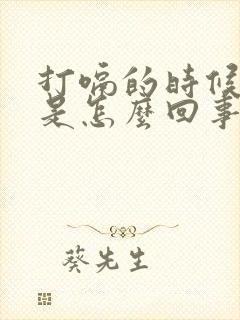 打嗝的時候
是怎麼回事
葵先生